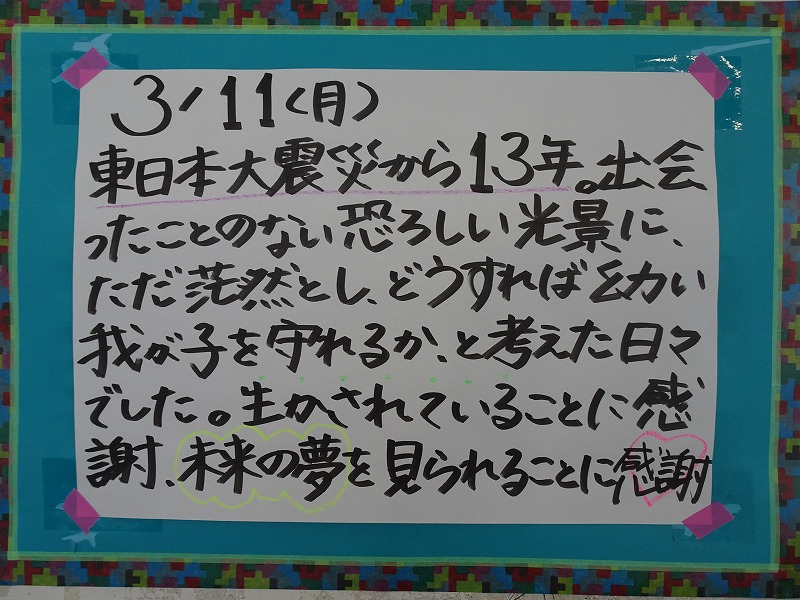 3/11(月)
東日本大震災から13年。出会
ったことのない恐ろしい光景に、
ただ茫然とし、どうすれば幼い
我が子を守れるか、と考えた日々
でした。生かされていることに感
謝、未来の夢を見られることに感謝